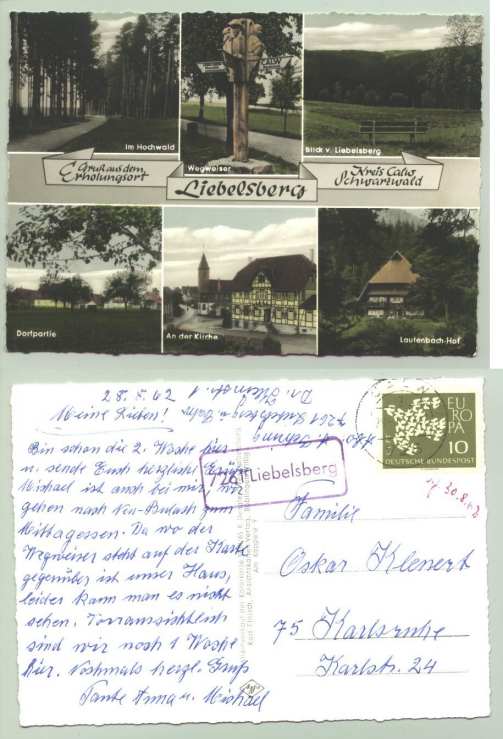 Im Hochwald
Wegweiser
CALW
Blick v. Liebelsberg
Gruß aus dem
Erholungsort
Liebelsberg
Kreis Calw
Schwarzwald
Dorfpartie
An der Kirche
Lautenbach-Hof
28. 8. 62
Meine Lieben!
Bin schon die 2. Woche hier
u. sende Euch herzliche Grüße
Michael ist auch bei mir, wir
gehen nach Neu-Bulach zum
Mittagessen. Da wo der
Wegweiser steht auf der Karte
gegenüber ist unser Haus,
leider kann man es nicht
sehen. Voraussichtlich
sind wir noch 1 Woche
hier. Nochmals herzl. Gruß
Tante Anna u. Michael
7261 Liebelsberg
EUROPA
10
DEUTSCHE BUNDESPOST
30.8.62
Familie
Oskar Klenert
75 Karlsruhe
Karlstr. 24